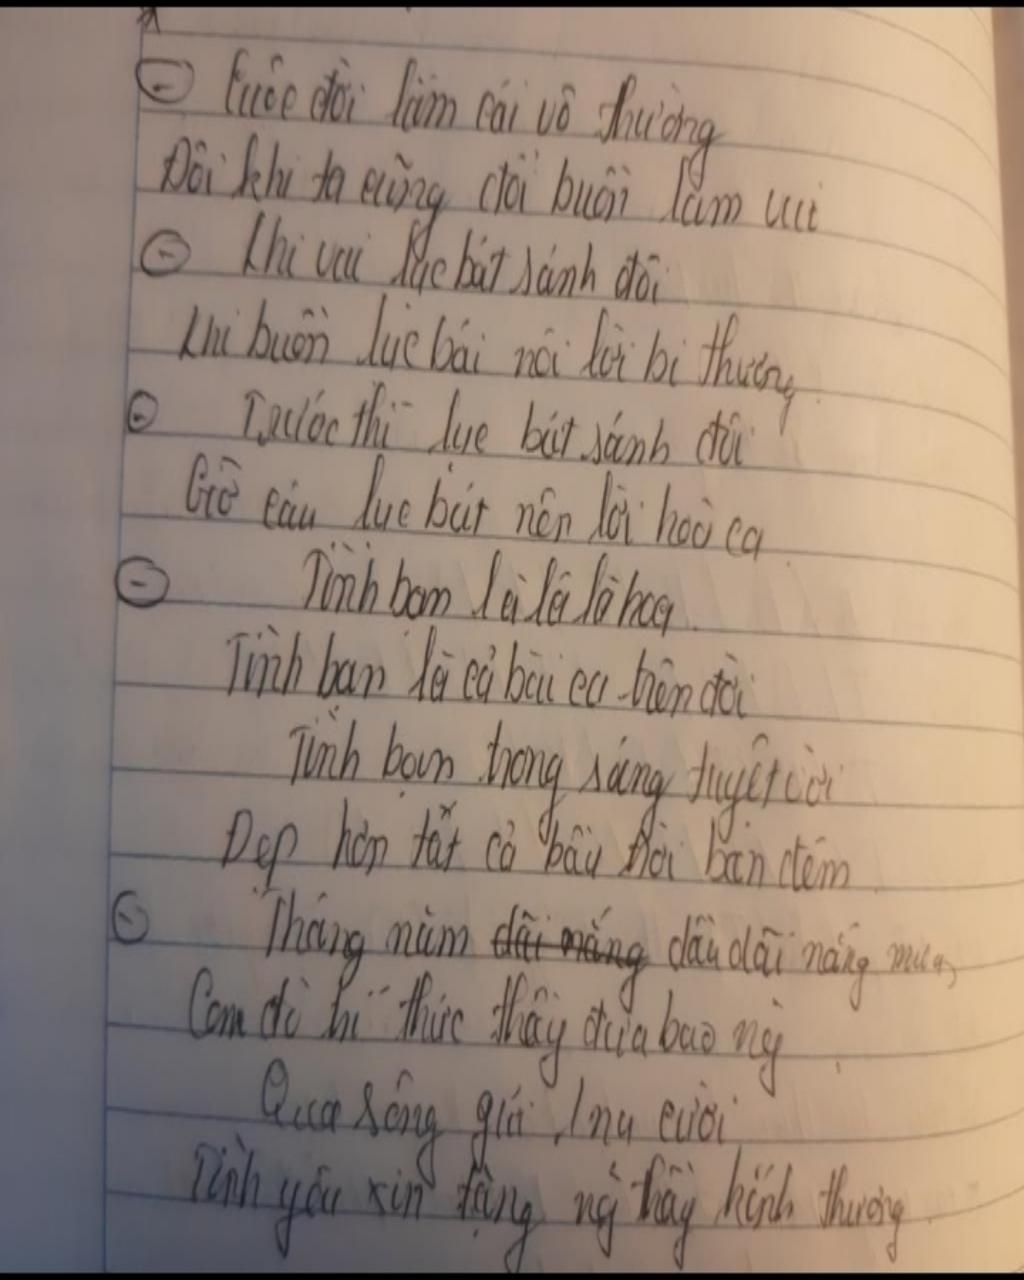 Cuộc đời lắm cái vô thường
Đôi khi ta cũng đổi buồn làm vui
Khi vui lục bát sánh đôi
Khi buồn lục bát nói lời bi thương
Trước thì lục bát sánh đôi
Giờ câu lục bát nên lời hoà ca
Tình bạn là lá là hoa
Tình bạn là cả bài ca trên đời
Tình bạn trong sáng tuyệt vời
Đẹp hơn tất cả bầu trời ban đêm
Tháng năm dầu dãi nắng mưa,
Con đò trí thức thầy đưa bao ng
Qua sông gửi nụ cười
Tình yêu xin tặng ng thầy kính thương